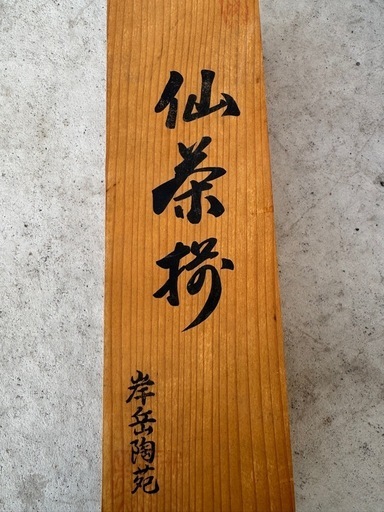 仙茶揃
岸岳陶苑